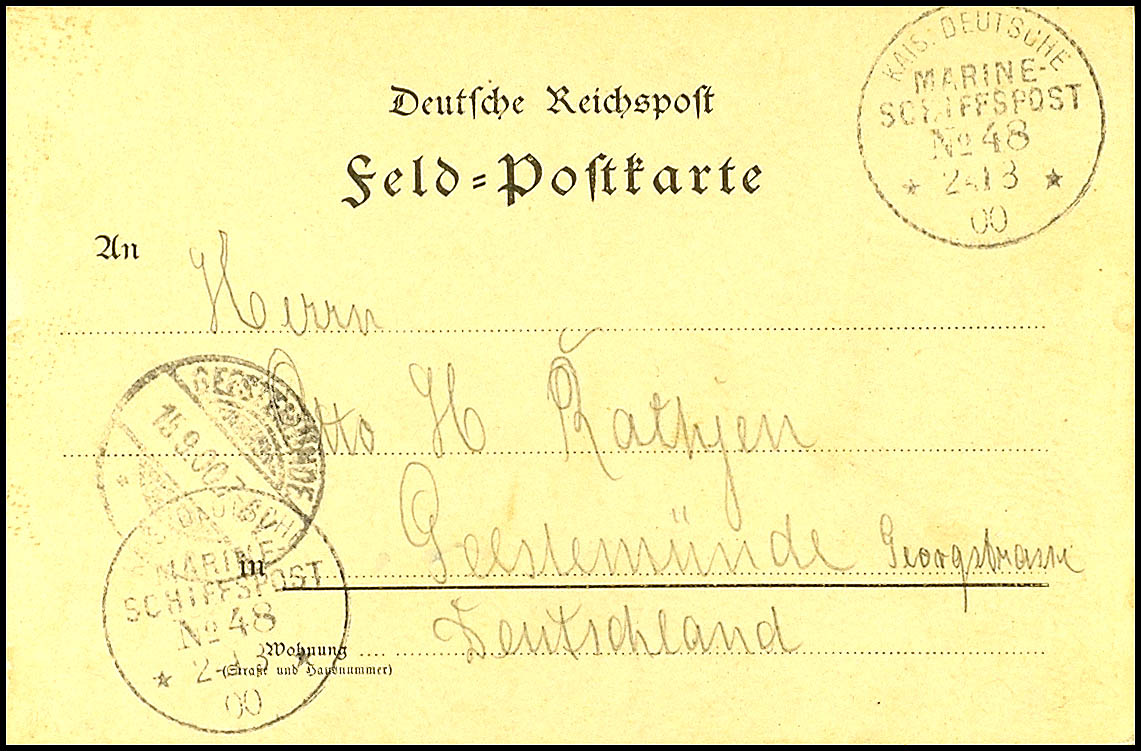 KAIS. DEUTSCHE
MARINE-
SCHIFFSPOST
No 48
00
Deutsche Reichspost
Feld=Postkarte
An
Herrn
Otto H Rathjen
GEESTEMÜNDE
15.9.00.7
in Geestemünde Georgstrasse
MARINE
SCHIFFSPOST
No 48
00
Wohnung
(Straße und Hausnummer)
Deutschland